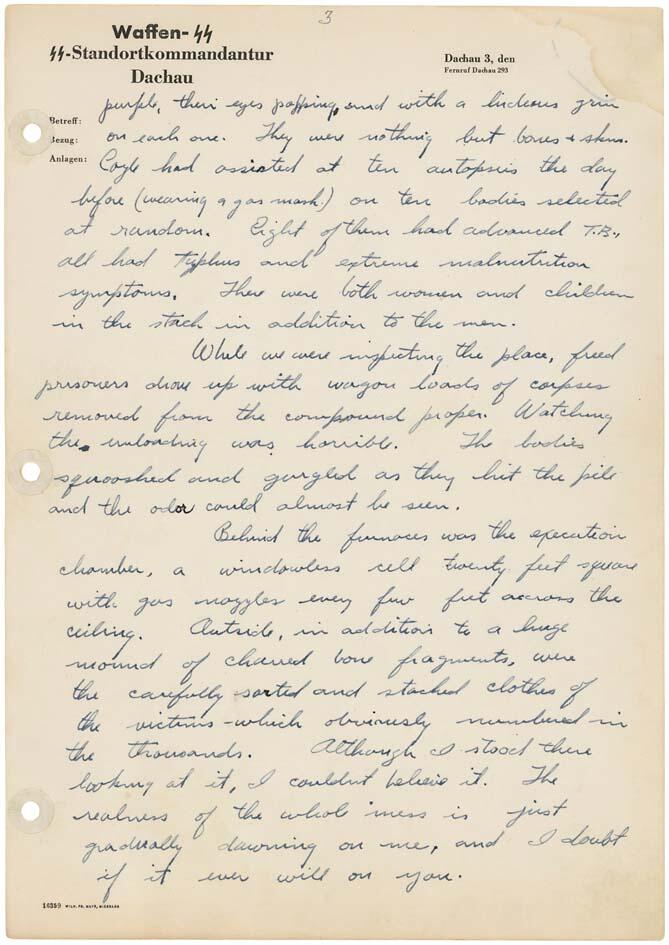 3
Waffen-SS
SS-Standortkommandantur
Dachau
Dachau 3, den
Fernruf Dachau 293
Betreff:
Bezug:
Anlagen:
purple, their eyes popping, and with a hideous grin
on each one. They were nothing but bones & skin.
Coyle had assisted at ten autopsies the day
before (wearing a gas mask!) on ten bodies selected
at random. Eight of them had advanced T.B.,
all had Typhus and extreme malnutrition
symptoms. There were both women and children
in the stack in addition to the men.
While we were inspecting the place, freed
prisoners drove up with wagon loads of corpses
removed from the compound proper. Watching
the unloading was horrible. The bodies
squooshed and gurgled as they hit the pile
and the odor could almost be seen.
Behind the furnaces was the execution
chamber, a windowless cell twenty feet square
with gas nozzles every few feet across the
ceiling. Outside, in addition to a huge
mound of charred bone fragments, were
the carefully sorted and stacked clothes of
the victims - which obviously numbered in
the thousands. Although I stood there
looking at it, I couldn't believe it. The
realness of the whole mess is just
gradually dawning on me, and I doubt
if it ever will on you.
16389